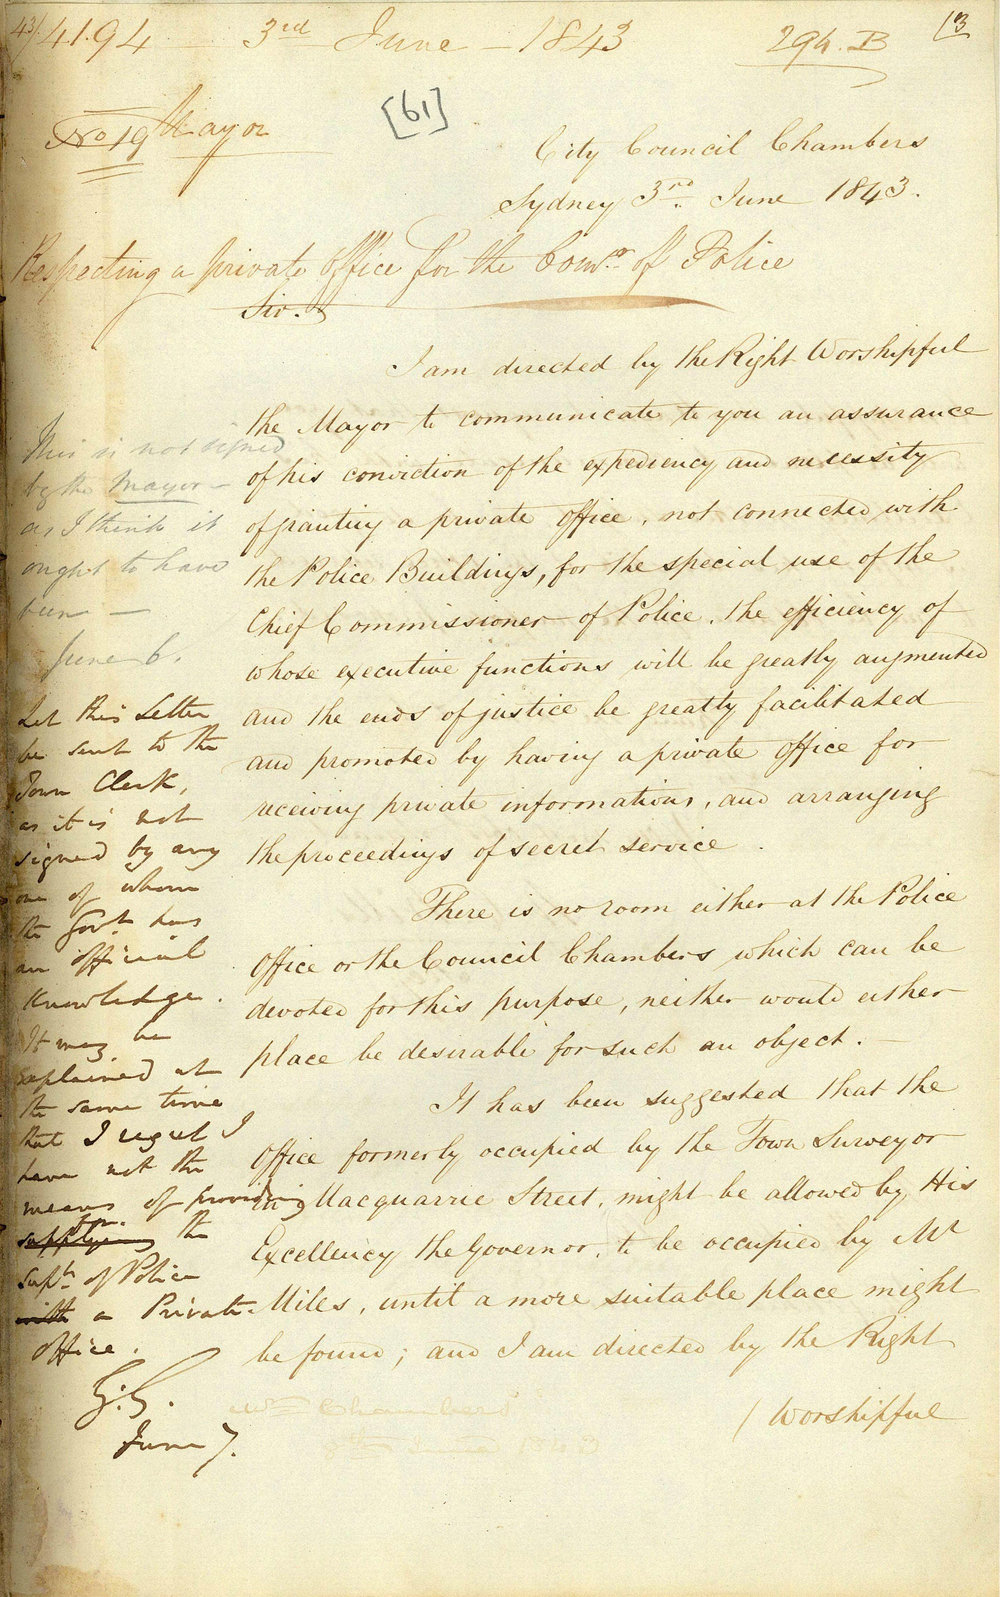 43/4194 — 3rd June — 1843 294. B 13
[61]
No 19 Mayor
City Council Chambers
Sydney 3rd. June 1843.
Respecting a private Office for the Comr. of Police
Sir.
I am directed by the Right Worshipful
the Mayor to communicate to you an assurance
of his conviction of the expediency and necessity
of granting a private office, not connected with
the Police Buildings, for the special use of the
Chief Commissioner of Police, the efficiency of
whose executive functions will be greatly augmented
and the ends of justice be greatly facilitated
and promoted by having a private office for
receiving private informations, and arranging
the proceedings of secret service.
There is no room either at the Police
Office or the Council Chambers which can be
devoted for this purpose, neither would either
place be desirable for such an object. —
It has been suggested that the
Office formerly occupied by the Town Surveyor
in Macquarrie Street, might be allowed by His
Excellency the Governor, to be occupied by Mr
Miles, until a more suitable place might
be found; and I am directed by the Right
/ Worshipful
This is not signed
by the Mayor —
as I think it
ought to have
been —
June 6.
Let this Letter
be sent to the
Town Clerk,
as it is not
signed by any
one of whom
the Govt. has
an official
Knowledge.
It may be
explained at
the same time
that I regret I
have not the
means of providing
for
supplying the
supt. of Police
with a Private
office.
G.G.
June 7.
Chambers
June 1843